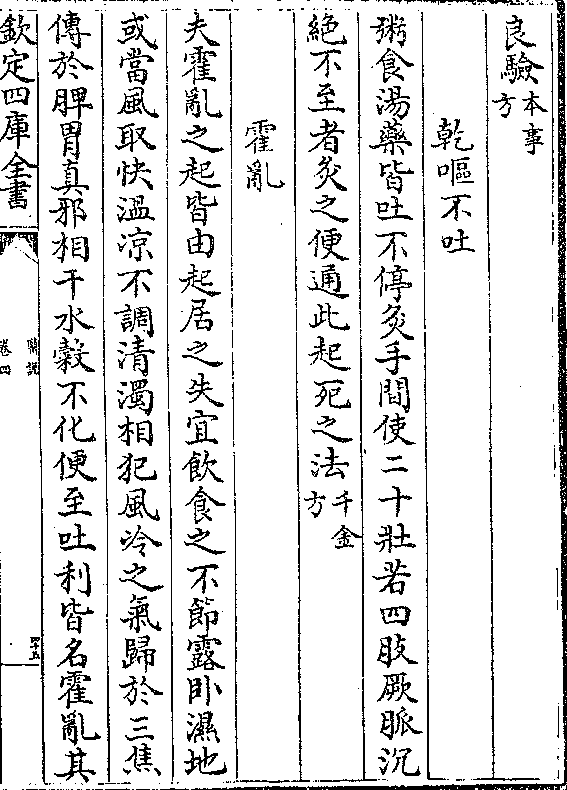 良驗本事方
乾嘔不吐
粥食湯藥皆吐不停灸手間使二十壯若四肢厥脈沉
絶不至者灸之便通此起死之法千金方
霍亂
夫霍亂之起皆由起居之失宜飲食之不節露卧濕地
或當風取快溫凉不調清濁相犯風冷之氣歸於三焦
傳於脾胃真邪相干水糓不化便至吐利皆名霍亂其
欽定四庫全書
醫說
卷四
四十五